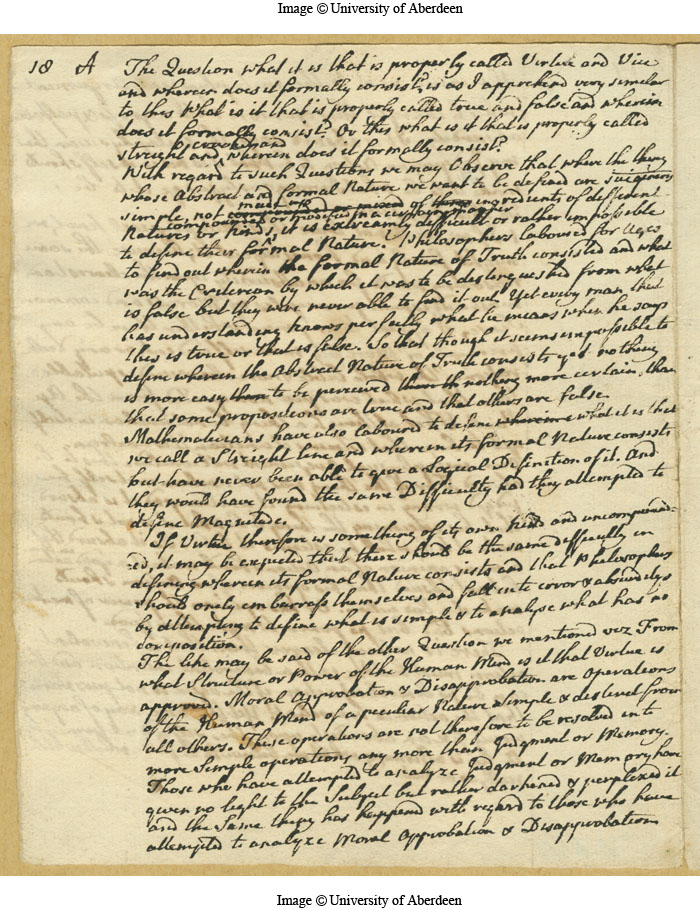 Image © University of Aberdeen
18 A The Question what it is that is properly called Virtue and Vice
and wherein does it formally consist, is as I apprehend very similar
to this What is it that is properly called true and false and wherein
does it formally consist? Or this what is it that is properly called
streight and crooked and wherein does it formally consist?
With regard to such Questions we may Observe that where the thing
whose Abstract and formal Nature we want to be defined are sui generis
simple, not compounded or mixed of three made up ingredients of different
Natures or kinds, compounded or modified in a certain manner it is extreamly difficult or rather impossible
to define their formal Nature. Philosophers laboured for Ages
to find out wherein the formal Nature of Truth consisted and what
was the Criterion by which it was to be distinguished from what
is false but they were never able to find it out. Yet every man that
has understanding knows perfectly what he means when he says
this is true or that is false. So that though it seems impossible to
define wherein the Abstract Nature of Truth consists yet nothing
is more easy them to be perceived them th nothing more certain, than
that some propositions are true and that others are false.
Mathematicians have also laboured to define wherein e what it is that
we call a Streight line and wherein its formal Nature consists
but have never been able to give a Logical Definition of it. And
they would have found the same Difficulty had they attempted to
define Magnitude.
If Virtue therefore is something of its own kind and uncompound-
-ed, it may be expected that there should be the same difficulty in
defining wherein its formal Nature consists and that Philosophers
should onely embarrass themselves and fall into error & absurdity
by attempting to define what is simple & to analyse what has no
composition.
The like may be said of the other Question we mentioned viz From
what Structure or Power of the Human Mind is it that Virtue is
approved. Moral Approbation & Disapprobation are Operations
of the Human Mind of a peculiar Nature Simple & distinct from
all others. These operations are not therefore to be resolved into
more Simple operations any more than Judgment or Memory.
Those who have attempted to analyze Judgment or Memory have
given no light to the Subject but rather darkened & perplexed it
and the Same thing has happened with regard to those who have
attempted to analyze Moral Approbation & Disapprobation
Image © University of Aberdeen